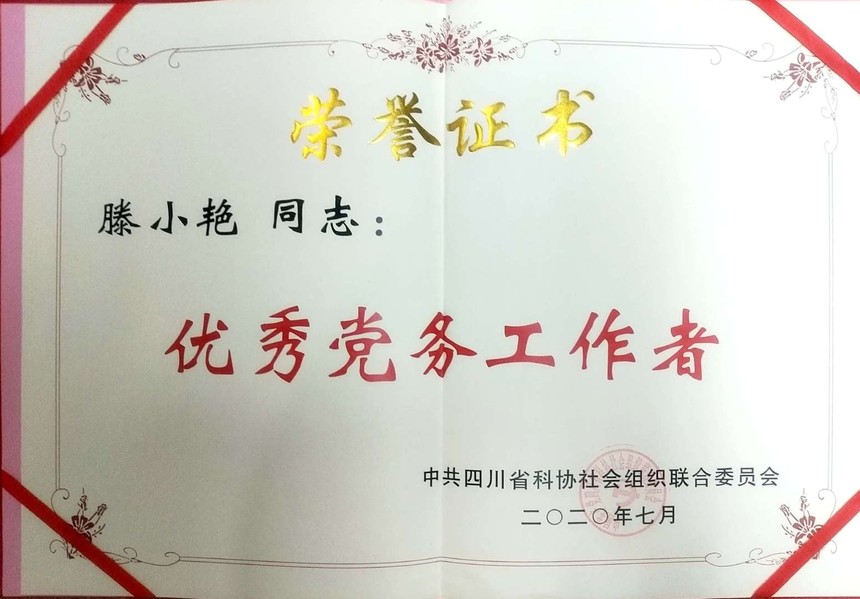 荣誉证书
滕小艳 同志：
优秀党务工作者
中共四川省科协社会组织联合委员会
二〇二〇年七月